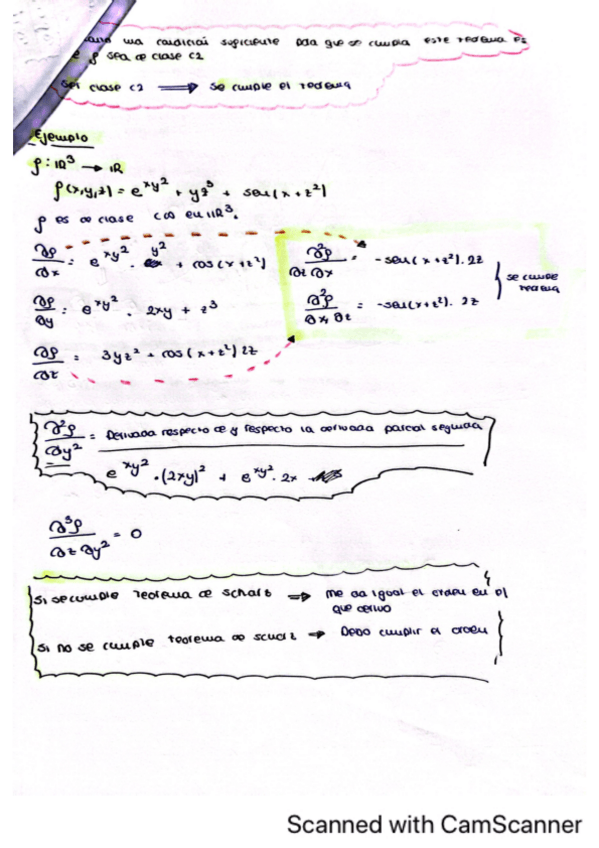 una condición suficiente para que se cumpla este teorema es
f sea de clase C2
Ser clase C2 ⟹ se cumple el teorema
Ejemplo
f: IR³ → IR
f(x,y,z) = e^xy² + yz³ + sen(x+z²)
f es de clase C∞ en IR³.
∂f/∂x = e^xy² · y² + cos(x+z²)
∂²f/∂z∂x = -sen(x+z²). 2z
∂f/∂y = e^xy² · 2xy + z³
∂²f/∂x∂z = -sen(x+z²). 2z
se cumple
teorema
∂f/∂z = 3yz² + cos(x+z²) 2z
∂²f/∂y² = Derivada respecto de y respecto la derivada parcial segunda
e^xy² · (2xy)² + e^xy² · 2x
∂³f/∂z∂y² = 0
Si se cumple Teorema de Schartz ⟹ me da igual el orden en el
que derivo
Si no se cumple teorema de scuartz → Debo cumplir el orden
Scanned with CamScanner